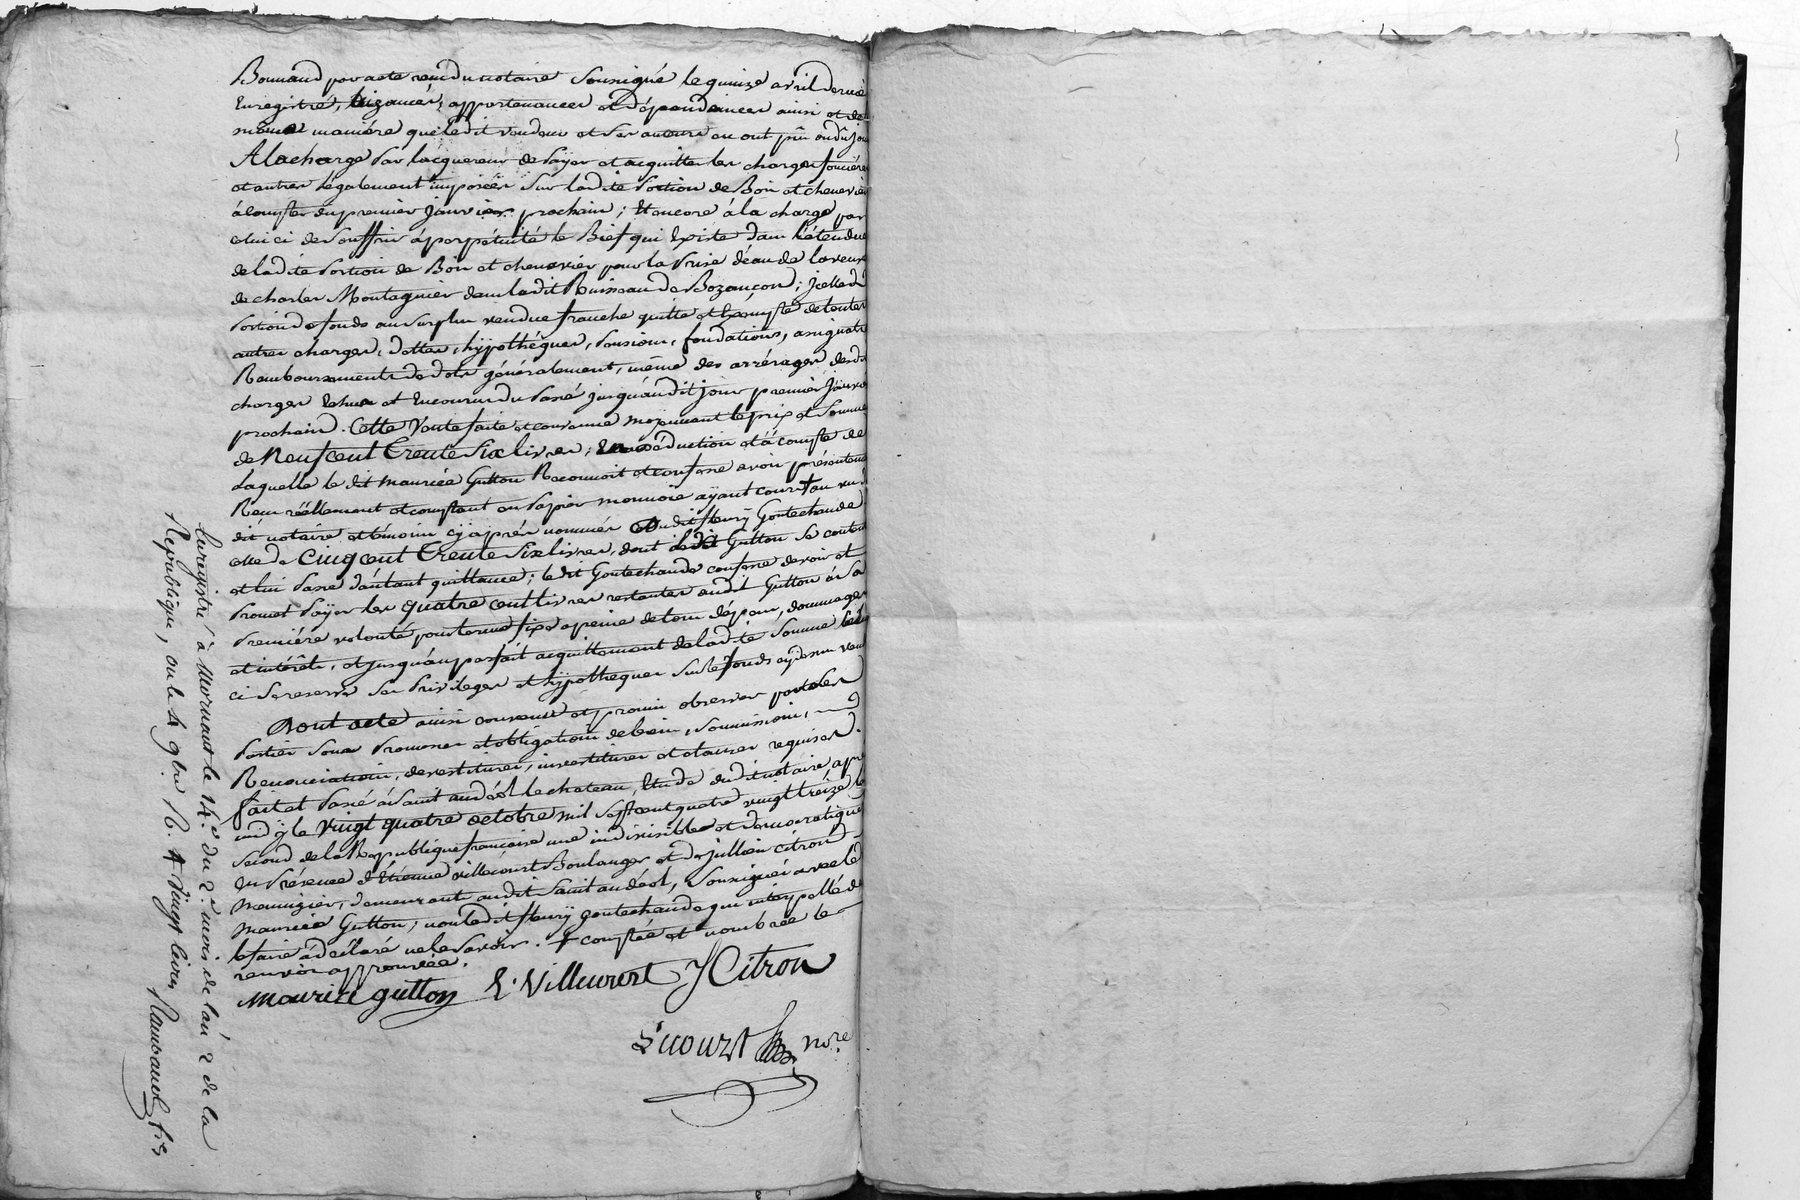 Bonnand par acte reçu du notaire soussigné le quinze avril dernier
Enregistré, aizances, appartenances et dépendances ainsi et de
même manière que ledit vendeur et ses auteurs en ont pû ou dû jouir
A la charge par lacquereur de payer et acquitter les charges foncières
et autres légalement imposées sur ladite portion de Bois et chenevier
à compter du premier janvier prochain ; Et encore à la charge par
celui ci de souffrir à perpétuité le Bief qui Existe dans l'étendue
de ladite portion de Bois et chenevier pour la prise d'eau de
de charles Montagnier dans ledit Ruisseau de Bozançon ; Icelle
portion de fonds au surplus vendue franche quitte et Exempte de toutes
autres charges, dettes, hypothèques, pensions, fondations,
Remboursements de dots généralement, même des arrérages desdites
charges Echus et Encourus du passé jusqu'audit jour premier janvier
prochain. Cette Vente faite et convenue moyennant le prix et somme
de Neuf cent Trente Six livres ; En déduction et à compte de
laquelle le dit maurice Gutton Reconnoit et confesse avoir présentement
Reçu réellement et comptant en papier monnoie ayant cours + au vu
dit notaire et témoins cy après nommés dudit fleury Gontechaude
celle de Cinq cent Trente Six livres, dont ledit Gutton se contente
et lui passe d'autant quittance ; le dit Gontechaude confesse devoir et
promet payer les quatre cent livres restantes audit Gutton à sa
première volonté pour terme fixe a peine de tous dépens, dommages
et intérêts, et jusqu'au parfait acquittement de ladite somme
ci se reserve ses privileges et hypotheques sur le fonds cy dessus vendu
Dont acte ainsi convenu et promis observer par les
parties sous promesses et obligations de biens, soumissions,
Renonciations, devestitures, investitures et clauses requises.
fait et passé à Saint andéol le chateau, Etude dudit notaire après
midi le vingt quatre octobre mil sept cent quatre vingt treize le
second de la Republique françoise une indivisible et démocratique
En présence d'Etienne villecourt Boulanger et de jullien citron
Menuizier, demeurants audit Saint andéol, soussignés avec le
Maurice Gutton, non ledit fleury gontechaude qui interpellé de
le faire a déclaré ne le savoir. + comptée et nombrée le
renvoi approuvée.
maurice gutton E. Villecourt J Citron
nore
Enregistré à Mornant le 14.e du 2.e mois de l'an 2 de la
Republique, ou le 4 9bre R. 4 Vingt livres